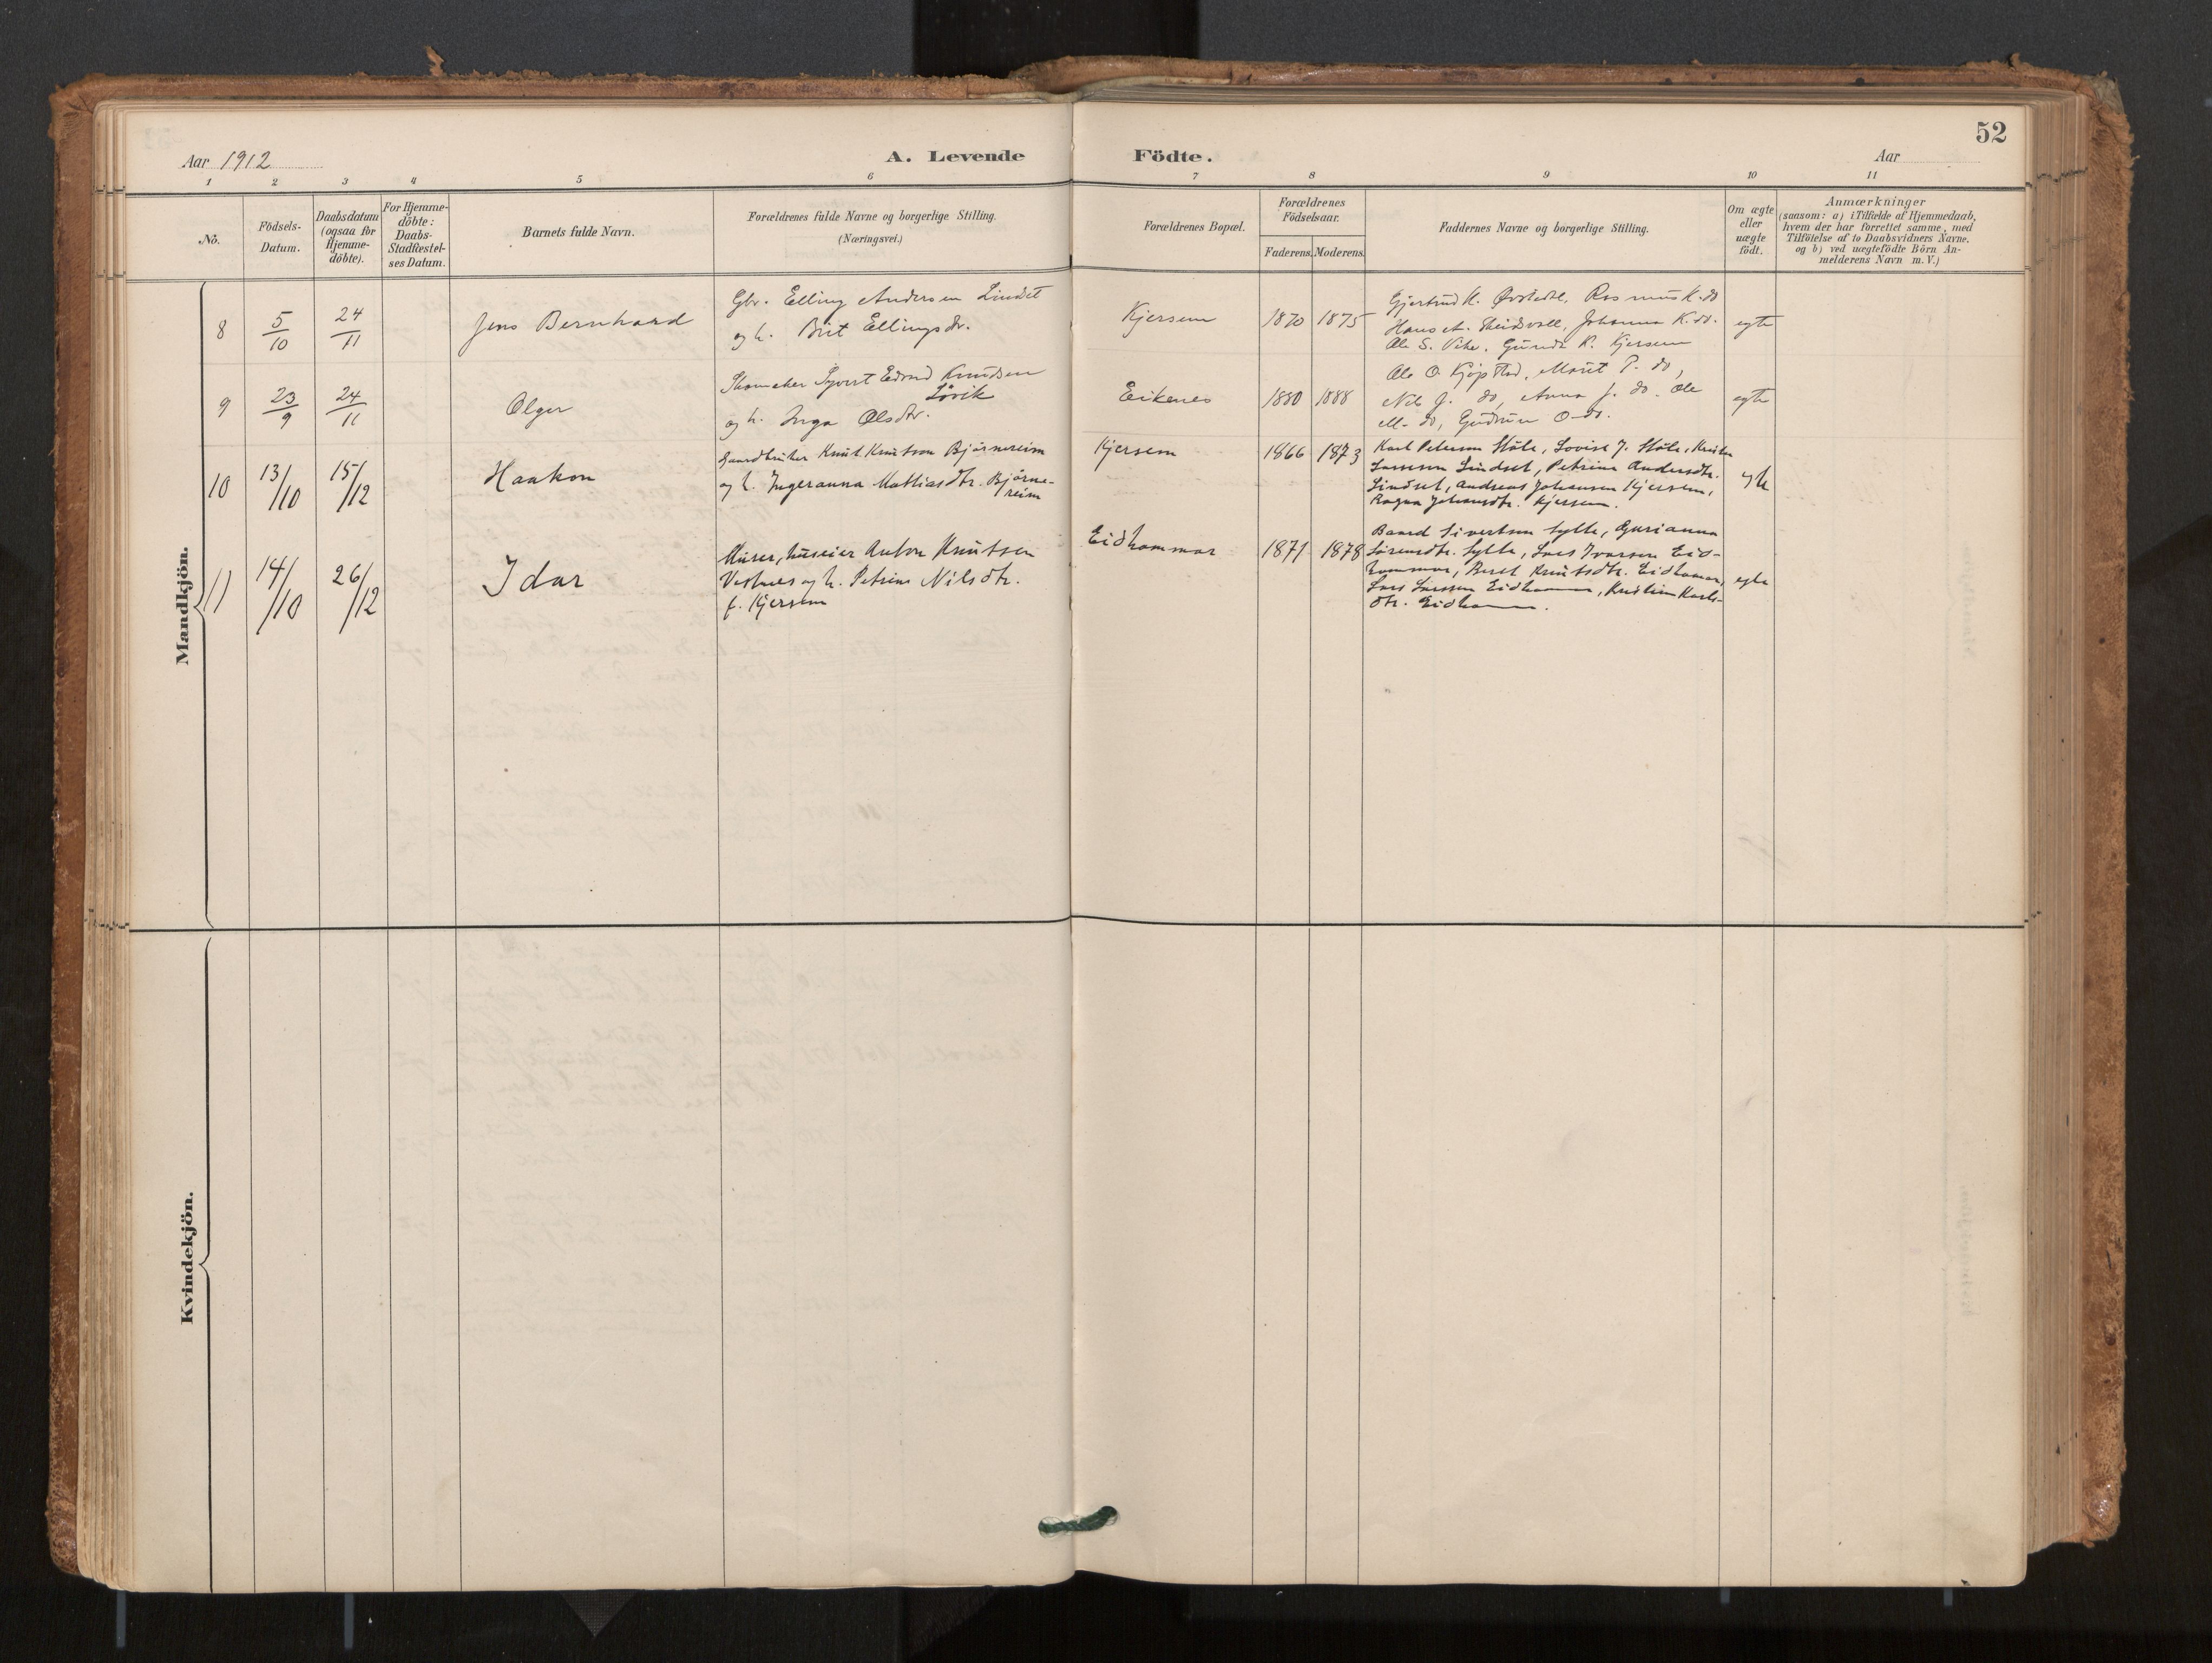 52
Aar 1912
A. Levende Födte.
Aar
1 2 3 4 5 6 7 8 9 10 11
No.
Födsels-Datum.
Daabsdatum (ogsaa for Hjemme-döbte).
For Hjemme-döbte: Daabs-Stadfæstel-ses Datum.
Barnets fulde Navn.
Forældrenes fulde Navne og borgerlige Stilling.
(Næringsvei.)
Forældrenes Bopæl.
Forældrenes Födselsaar.
Faderens. Moderens.
Faddernes Navne og borgerlige Stilling.
Om ægte eller uægte födt.
Anmærkninger
(saasom: a) i Tilfælde af Hjemmedaab,
hvem der har forrettet samme, med
Tilföielse af to Daabsvidners Navne.
og b) ved uægtefödte Börn An-
melderens Navn m. V.)
Mandkjön.
8 5/10 24/11 Jens Bernhard
Gbr. Elling Andersen Lindset
og h. Brit Ellingsdr.
Kjersem 1870 1875
Gjertrud K. Rasmus K. do
Hans A. Johanna K. do.
Ole S. Vike. K. Kjersem
egte
9 23/9 24/11 Olger
Skomaker Syvert Edvard Knudsen
Lövik
og h. Inga Olsdtr.
Eikenes 1880 1888
Ole O. Kjöpstad, Marit P. do,
Nils J. do, Anna J. do. Ole
M. do, Gudrun O. do.
egte
10 13/10 15/12 Haakon
Gaardbruker Knut Knutson Bjørnereim
og h. Ingeranna Mattiasdtr. Bjørne-
reim
Kjersem 1866 1873
Karl Peterson Stöle, Lovise J. Stöle,
Larsson Lindset, Petrine Andersdtr.
Lindset, Andreas Johansen Kjersem,
Ragna Johansdtr. Kjersem.
egte
11 14/10 26/12 Idar
Murer, huseier Anton Knutsen
Vestnes og h. Petrine Nilsdtr.
f. Kjersem
Eidhammar 1871 1878
Baard Sivertsen Sylte, Gurianna
Sörensdtr. Sylte, Lars Ivarsen Eid-
hammar, Beret Knutsdtr. Eidhamar,
Lars Larssen Eidhammar, Kristine Karls-
dtr. Eidhammar.
egte
Kvindekjön.